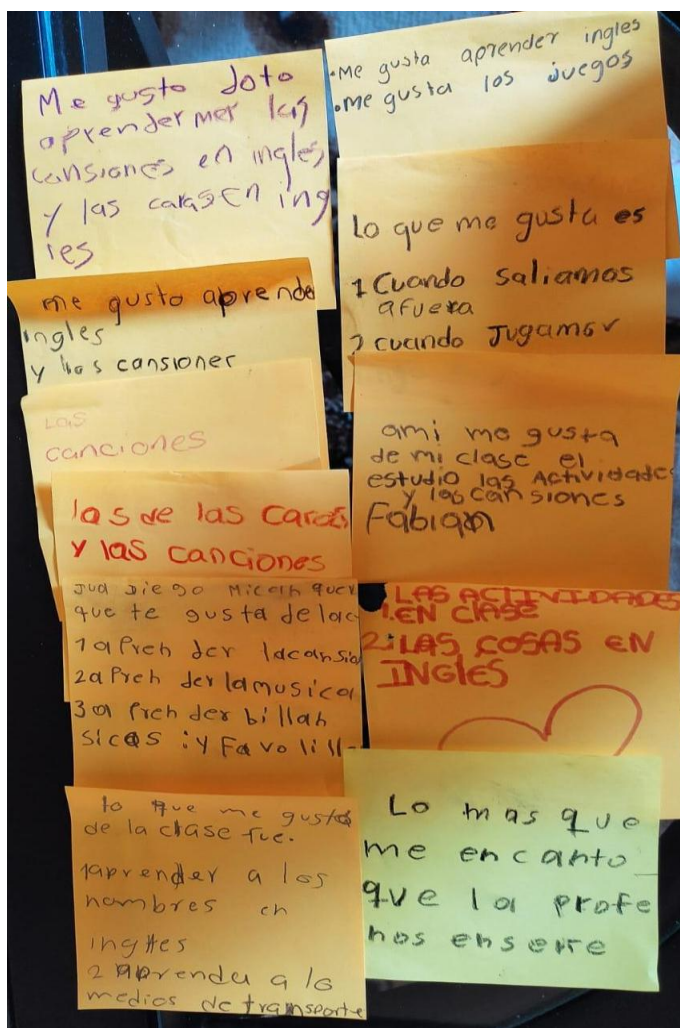 Me gusto doto
aprendermer las
cansiones en ingles
y las caras en ing
les
me gusto aprende
ingles
y las cansioner
Las
canciones
las de las caras
y las canciones
que te gusta de
1 aprender lacansio
2 aprender lamusica
3 aprender billan
sicos y Favo
lo que me gusto
de la clase fue.
1 aprender a los
nombres en
ingles
2 aprender a lo
medios de transporte
•Me gusta aprender ingles
•me gusta los juegos
Lo que me gusta es
1 Cuando saliamos
afuera
2 cuando Jugamor
ami me gusta
de mi clase el
estudio las Actividades
y las cansiones
Fabian
LAS ACTIVIDADES
1.EN ClASE
2.LAS COSAS EN
INGles
Lo mas que
me encanto
que la profe
nos enseñe